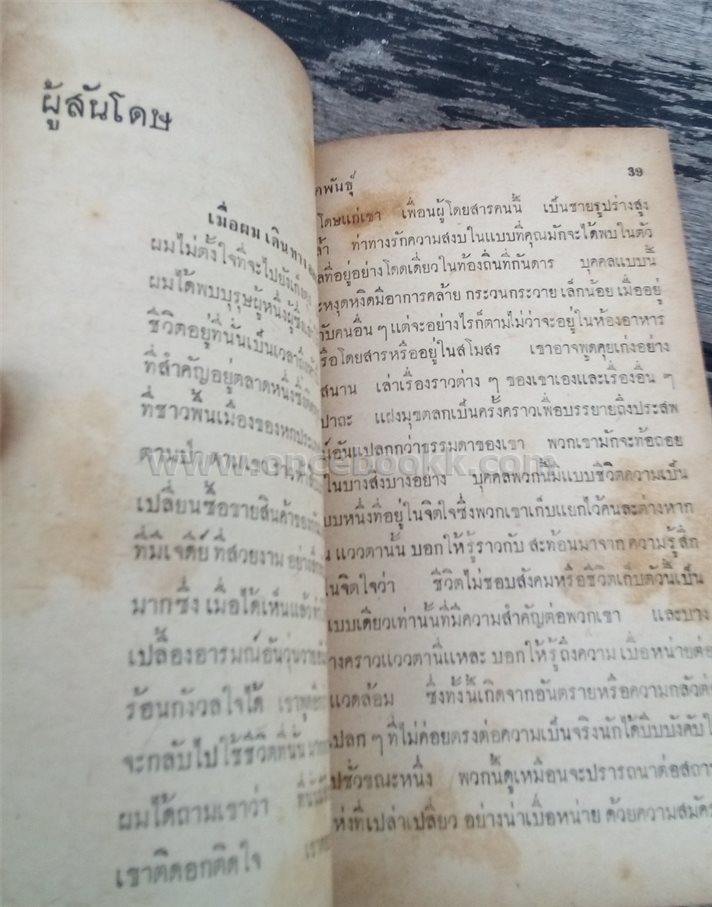 ผู้สันโดษ
เมื่อผมเดินทาง
ผมไม่ตั้งใจที่จะไปยังเก็งตุง
ผมได้พบบุรุษผู้หนึ่งผู้ซึ่ง
ชีวิตอยู่ที่นั่นเป็นเวลา
ที่สำคัญอยู่ตลาดหนึ่งซึ่ง
ที่ชาวพื้นเมืองของหก
ตามป่า ตามเขา
เปลี่ยนซื้อขายสินค้าของ
ที่มีเจดีย์ ที่สวยงาม อย่าง
มากซึ่ง เมื่อได้เห็นแล้ว
เปลื้องอารมณ์อันวุ่นวาย
ร้อนกังวลใจได้ เขาพูด
จะกลับไปใช้ชีวิตที่นั่น
ผมได้ถามเขาว่า
เขาติดอกติดใจ
คพันธุ์ 39
โดษแก่เขา เพื่อนผู้โดยสารคนนี้ เป็นชายรูปร่างสูง
ล้ำ ท่าทางรักความสงบในแบบที่คุณมักจะได้พบในตัว
ลที่อยู่อย่างโดดเดี่ยวในท้องถิ่นที่กันดาร บุคคลแบบนี้
ะหงุดหงิดมีอาการคล้าย กระวนกระวาย เล็กน้อย เมื่ออยู่
กับคนอื่น ๆ แต่จะอย่างไรก็ตามไม่ว่าจะอยู่ในห้องอาหาร
รือโดยสารหรืออยู่ในสโมสร เขาอาจพูดคุยเก่งอย่าง
สนาน เล่าเรื่องราวต่าง ๆ ของเขาเองและเรื่องอื่น ๆ
ปาถะ แฝงมุขตลกเป็นครั้งคราวเพื่อบรรยายถึงประสพ
์อันแปลกกว่าธรรมดาของเขา พวกเขามักจะท้อถอย
ในบางสิ่งบางอย่าง บุคคลพวกนี้มีแบบชีวิตความเป็น
บบหนึ่งที่อยู่ในจิตใจซึ่งพวกเขาเก็บแยกไว้คนละต่างหาก
น แววตานั้น บอกให้รู้ราวกับ สะท้อนมาจาก ความรู้สึก
ในจิตใจว่า ชีวิตไม่ชอบสังคมหรือชีวิตเก็บตัวนี้เป็น
แบบเดียวเท่านั้นที่มีความสำคัญต่อพวกเขา และบาง
างคราวแววตานี่แหละ บอกให้รู้ถึงความ เบื่อหน่ายต่อ
แวดล้อม ซึ่งทั้งนี้เกิดจากอันตรายหรือความกลัวต่อ
แปลก ๆ ที่ไม่ค่อยตรงต่อความเป็นจริงนักได้บีบบังคับใ
ปชั่วขณะหนึ่ง พวกนี้ดูเหมือนจะปรารถนาต่อสถาน
ห่งที่เปล่าเปลี่ยว อย่างน่าเบื่อหน่าย ด้วยความสมัคร
www.oncebookk.com